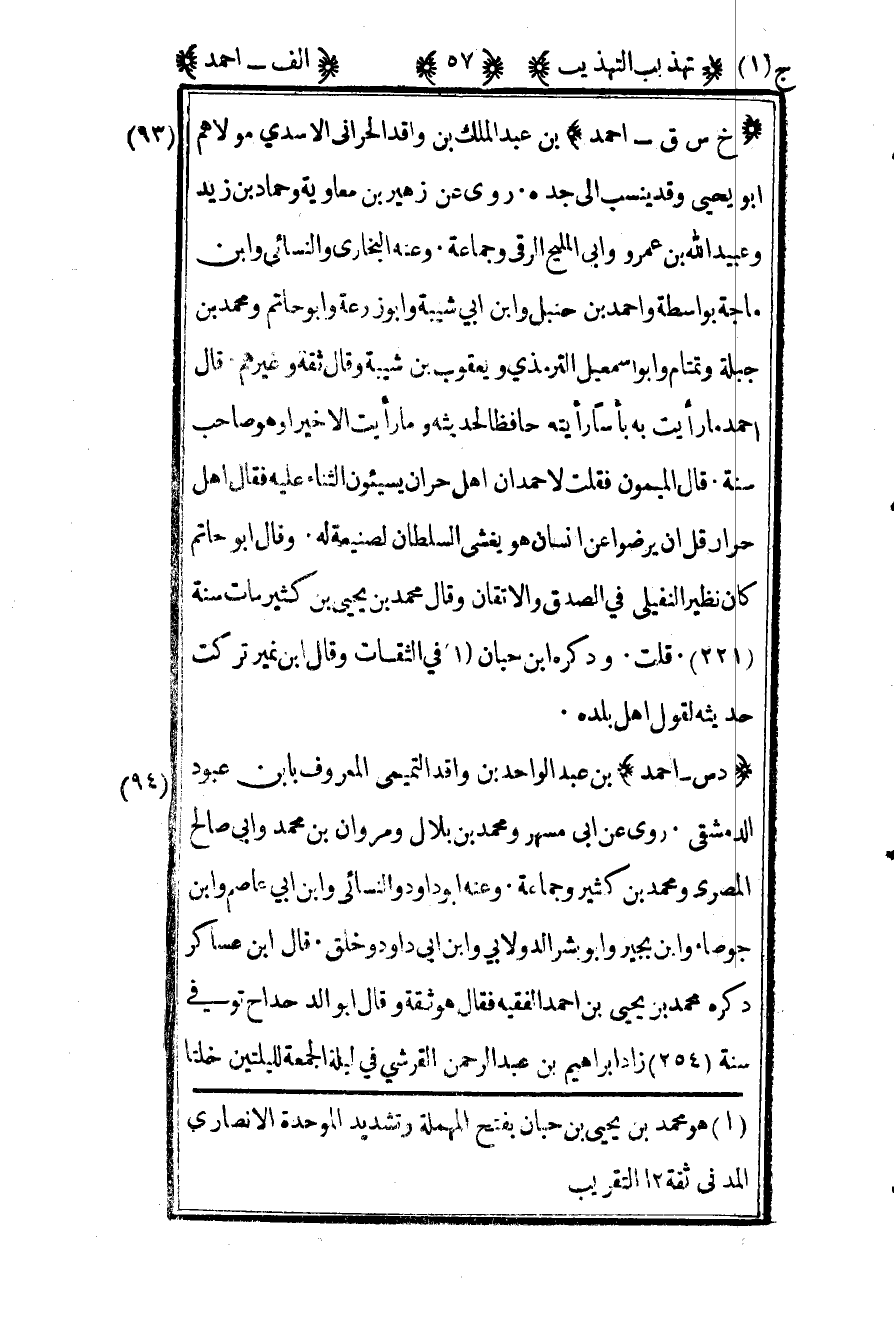 ج (١) ﴿ تهذيب التهذيب ﴾ ﴿ ٥٧ ﴾ ﴿ الف ـ احمد ﴾
﴿ خ س ق ـ احمد ﴾ بن عبد الملك بن واقد الحرانى الاسدي مولاهم (٩٣)
ابو يحيى وقد ينسب الى جده ٠ روى عن زهير بن معاوية وحماد بن زيد
وعبيد الله بن عمرو وابي المليح الرقى وجماعة ٠ وعنه البخارى والنسائى وابن
ماجة بواسطة واحمد بن حنبل وابن ابي شيبة وابو زرعة وابو حاتم ومحمد بن
جبلة وتمتام وابو اسمعيل الترمذي ويعقوب بن شيبة وقال ثقة وغيرهم ٠ قال
احمد ما رأيت به بأسا رأيته حافظا لحديثه وما رأيت الا خيرا وهو صاحب
سنة ٠ قال الميمون فقلت لاحمد ان اهل حران يسيئون الثناء عليه فقال اهل
حران قل ان يرضوا عن انسان هو يغشى السلطان لصنيعة له ٠ وقال ابو حاتم
كان نظير النفيلى في الصدق والاتقان وقال محمد بن يحيى بن كثير مات سنة
(٢٢١) ٠ قلت ٠ وذكره ابن حبان (١) في الثقات وقال ابن نمير تركت
حديثه لقول اهل بلده ٠
﴿ دس ـ احمد ﴾ بن عبد الواحد بن واقد التميمى المعروف بابن عبود (٩٤)
الدمشقى ٠ روى عن ابى مسهر ومحمد بن بلال ومروان بن محمد وابي صالح
المصرى ومحمد بن كثير وجماعة ٠ وعنه ابو داود والنسائى وابن ابي عاصم وابن
جوصاء وابن بجير وابو بشر الدولابي وابن ابى داود وخلق ٠ قال ابن عساكر
ذكره محمد بن يحيى بن احمد الفقيه فقال هو ثقة وقال ابو الدحداح توفي
سنة (٢٥٤) زاد ابراهيم بن عبد الرحمن القرشي في ليلة الجمعة لليلتين خلتا
(١) هو محمد بن يحيى بن حبان بفتح المهملة وتشديد الموحدة الانصاري
المدنى ثقة ١٢ التقريب